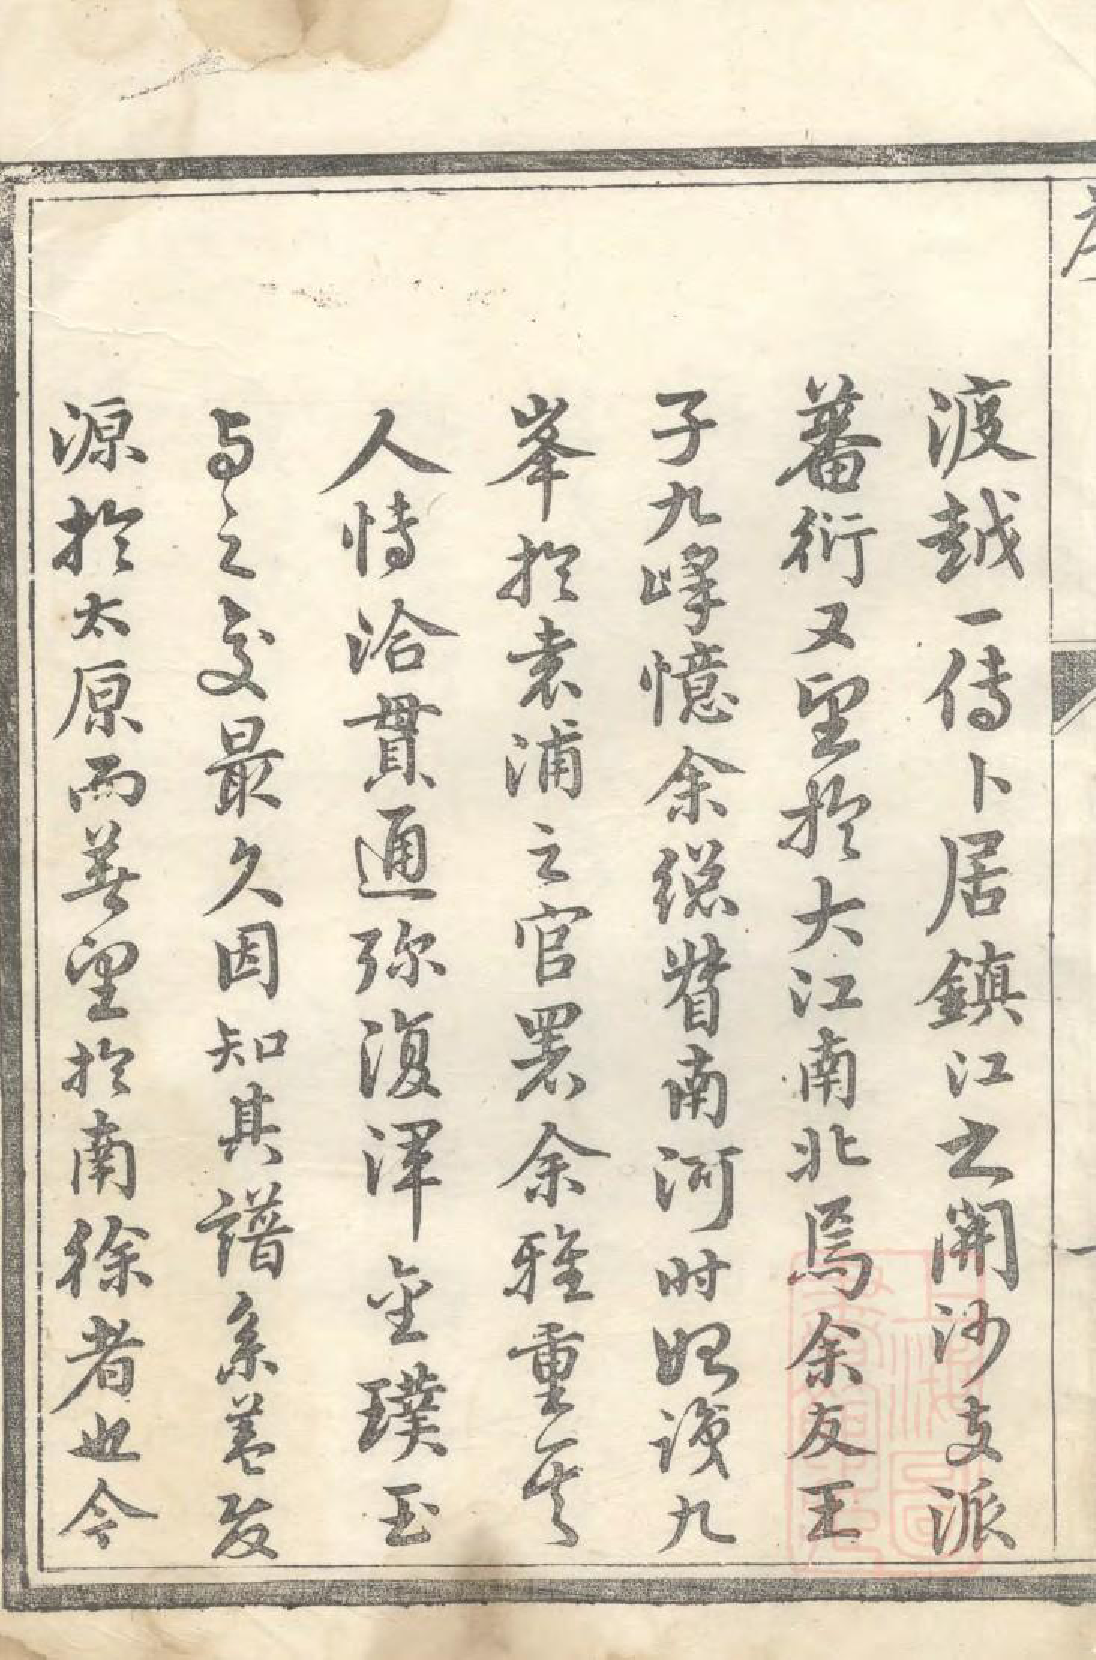 渡越一傳卜居鎮江之開沙支派
蕃衍又望於大江南北焉余友王
子九峰憶余總督南河时始識九
峯於袁浦之官署余雅重其
人恃洽貫通弥復渾金璞玉
与之交最久因知其譜系盖发
源於太原而著望於南徐者也今